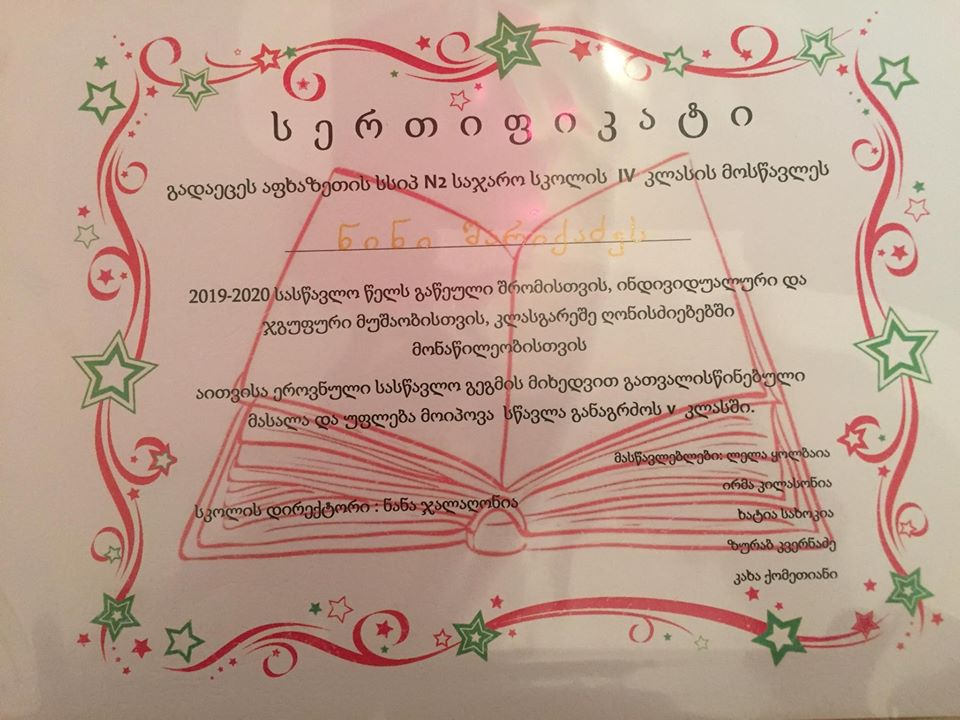 სერთიფიკატი
გადაეცეს აფხაზეთის სსიპ N2 საჯარო სკოლის IV კლასის მოსწავლეს
ნინი შარიქაძეს
2019-2020 სასწავლო წელს გაწეული შრომისთვის, ინდივიდუალური და
ჯგუფური მუშაობისთვის, კლასგარეშე ღონისძიებებში
მონაწილეობისთვის
აითვისა ეროვნული სასწავლო გეგმის მიხედვით გათვალისწინებული
მასალა და უფლება მოიპოვა სწავლა განაგრძოს v კლასში.
მასწავლებლები: ლელა ყოლბაია
ირმა კილასონია
სკოლის დირექტორი : ნანა ჯალაღონია
ხატია სახოკია
ზურაბ კვერნაძე
კახა ქომეთიანი